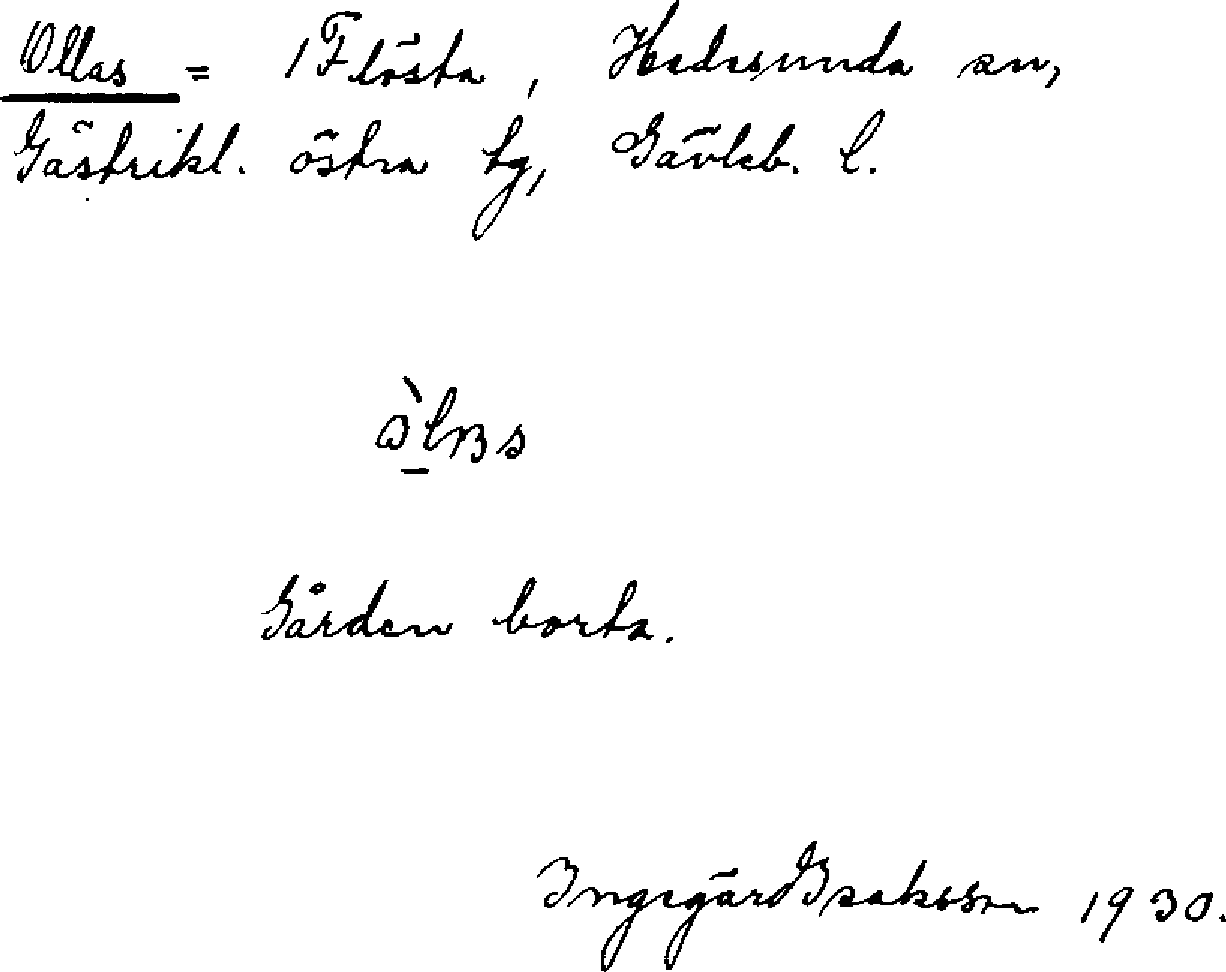 Ollas = 1 Flästa, Hedesunda sn,
Gästrikl. östra tg, Gävleb. l.
Gården borta.
Ingegärd Isaksson 1930.